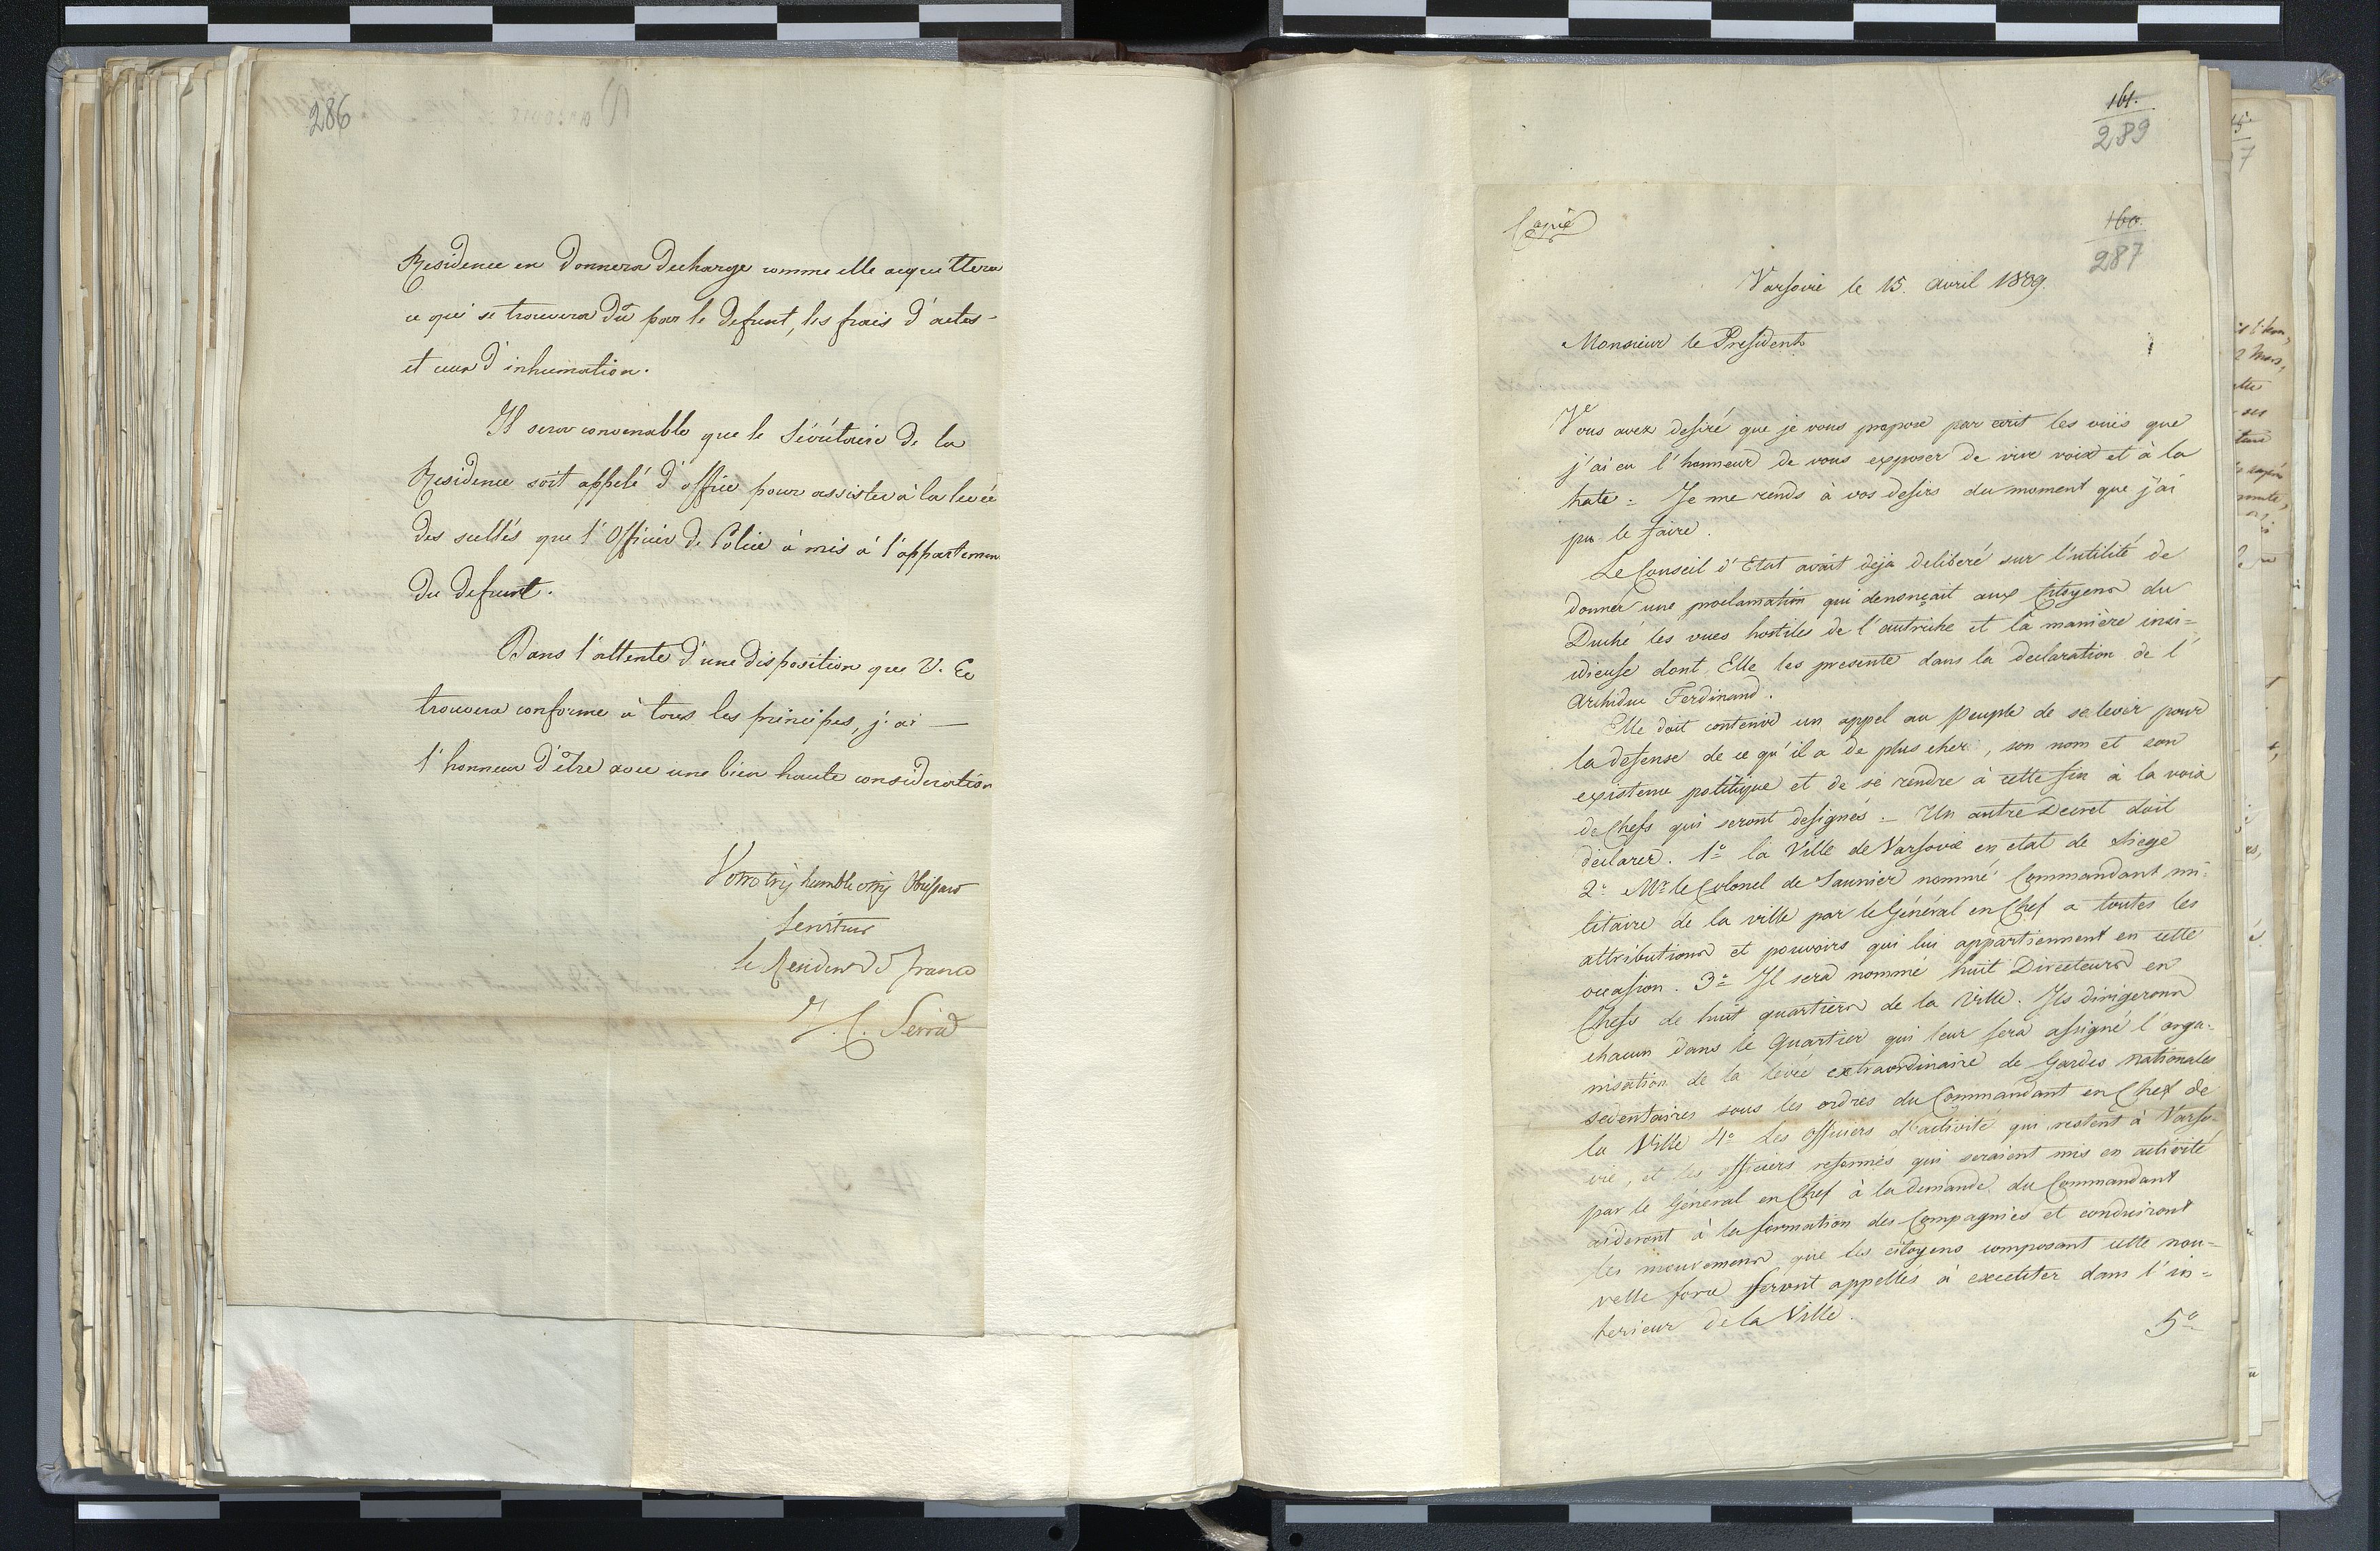 286
Residence en donnera decharge comme elle acquittera
ce qui se trouvera dû par le defunt, les frais d'actes -
et ceux d'inhumation.
Il sera convenable que le Sécrétaire de la
Residence soit appelé d'office pour assister à la levée
des scellés que l'Officier de Police a mis à l'appartemen
du defunt.
Dans l'attente d'une disposition que V. Ec
trouvera conforme à tous les principes, j'ai —
l'honneur d'être avec une bien haute consideration
Votre très humble et très Obeissant
Serviteur
le Resident de France
Serra
161.
289
Copie
160.
287
Varsovie le 15. Avril 1809.
Monsieur le President
Vous avez desiré que je vous propose par ecrit les vuës que
j'ai eu l'honneur de vous exposer de vive voix et à la
hate = Je me rends à vos desirs du moment que j'ai
pu le faire.
Le Conseil d'Etat avait déja deliberé sur l'utilité de
donner une proclamation qui denonçait aux Citoyens du
Duché les vues hostiles de l'autriche et la manière insi=
dieuse dont Elle les presente dans la declaration de l'
Archiduc Ferdinand.
Elle doit contenir un appel au peuple de se lever pour
la defense de ce qu'il a de plus cher, son nom et son
existence politique et de se rendre à cette fin à la voix
de Chefs qui seront designés = Un autre Decret doit
declarer. 1º la Ville de Varsovie en etat de Siege
2º Mr le Colonel de Saunier nommé Commandant mi=
litaire de la ville par le Général en Chef a toutes les
attributions et pouvoirs qui lui appartiennent en cette
occasion. 3º Il sera nommé huit Directeurs en
Chefs de huit quartiers de la Ville. Ils dirigeront
chacun dans le Quartier qui leur sera assigné l'orga-
nisation de la levée extraordinaire de Gardes nationales
sedentaires sous les ordres du Commandant en Chef de
la Ville 4º Les Officiers d'activité qui restent à Varso-
vie, et les officiers reformés qui seraient mis en activité
par le Général en Chef à la demande du Commandant
aideront à la formation des Compagnies et conduiront
les mouvemens que les citoyens composant cette nou=
velle force seront appellés à executer dans l'in=
terieur de la Ville.
5º